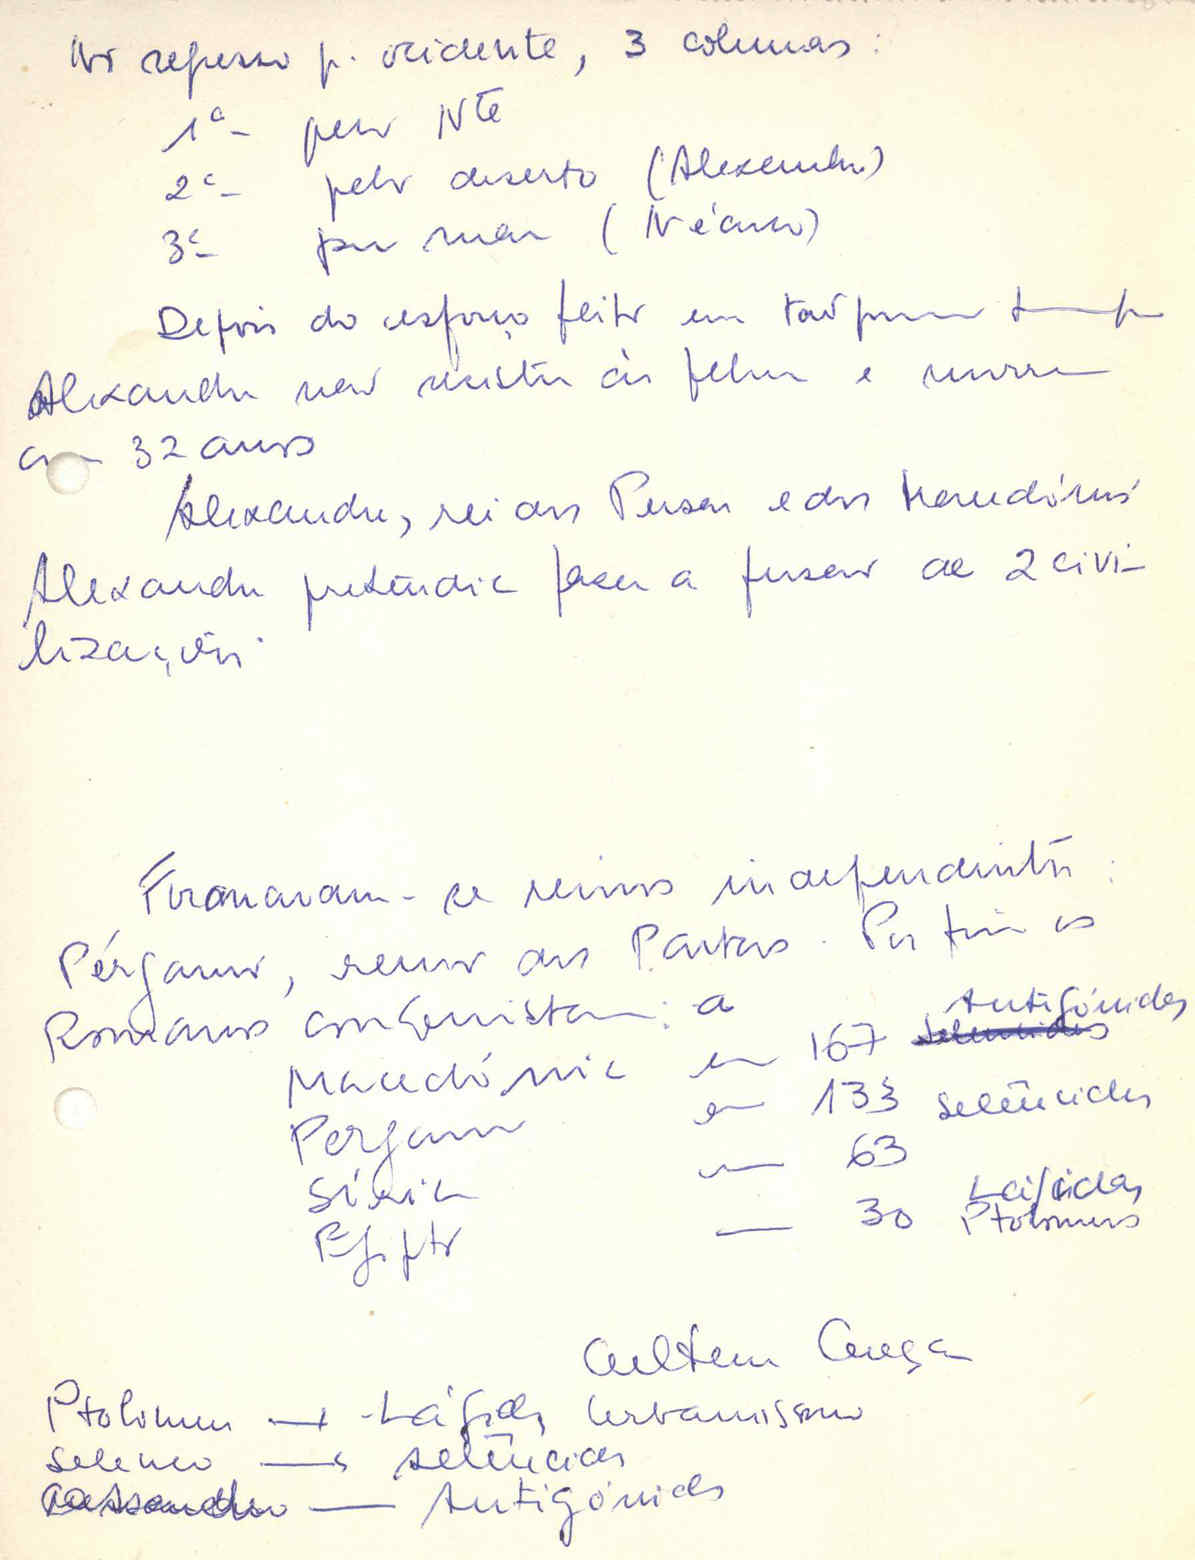 No regresso p. ocidente, 3 colunas:
1ª - pelo Nte
2ª - pelo deserto (Alexandre)
3ª - por mar (Néarco)
Depois do esforço feito em tão pouco tempo
Alexandre não resistiu às febres e morre
com 32 anos
Alexandre, rei dos Persas e dos Macedónios
Alexandre pretendia fazer a fusão de 2 civi-
lizações.
Formaram-se reinos independentes:
Pérgamo, reino dos Partos. Por fim os
Romanos conquistam: a
Antigónidas
Macedónia em 167
Pergamo em 133 selêucidas
Síria — 63
Lágidas
Egipto — 30 Ptolomeus
Cultura Grega
Ptolomeu → Lágidas Urbanismo
Seleuco → selêucidas
Cassandro — Antigónidas